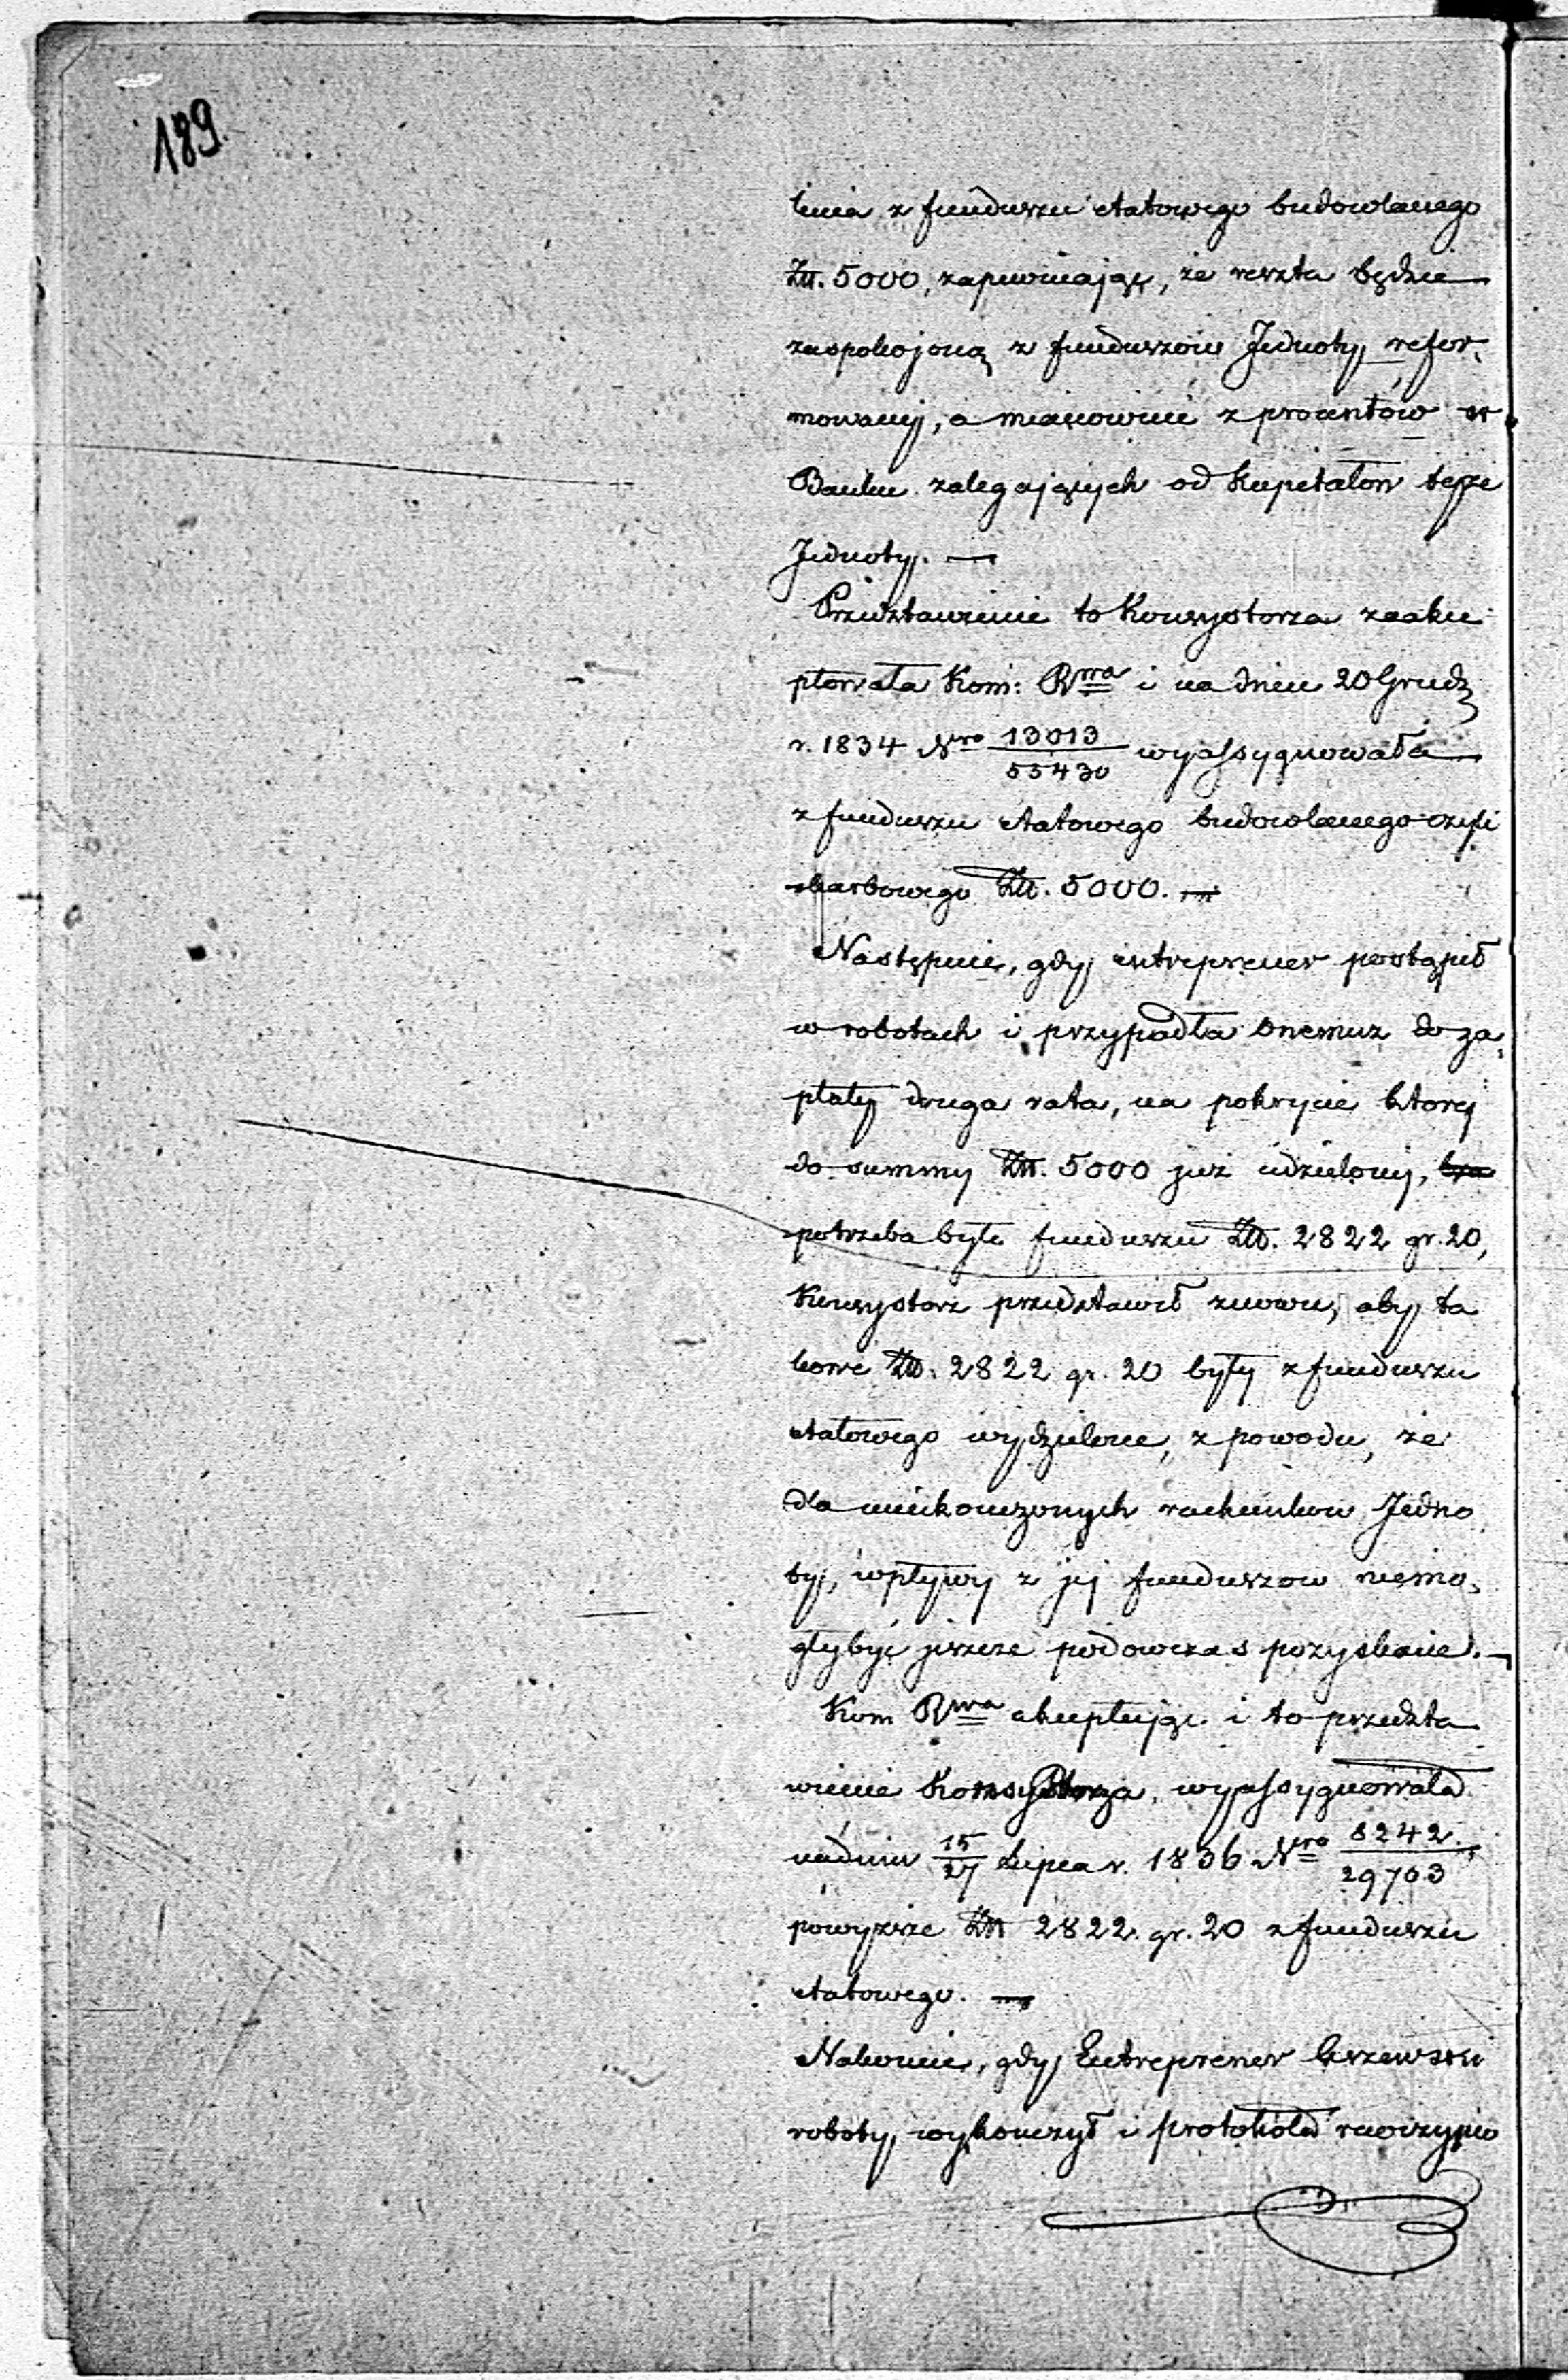 189.
lenia z funduszu etatowego budowlanego
Zł. 5000, zapewniając, że reszta będzie
zaspokojoną z funduszów Jednoty refor-
mowanej, a mianowicie z procentów w
Banku zalegających od kapitałów tejże
Jednoty. —
Przedstawienie to Konsystorza zaakce
ptowała Kom: Rwa i na dniu 20 Grudz
r. 1834 Nro 13013/55430 wyassygnowała
z funduszu etatowego budowlanego czyli
skarbowego Zł. 5000. —
Następnie, gdy entreprener postąpił
w robotach i przypadła onemuz do za-
płaty druga rata, na pokrycie ktorej
do summy Zł. 5000 już udzielonej,
potrzeba było funduszu Zł. 2822 gr. 20,
Konsystorz przedstawił znowu, aby ta
kowe Zł. 2822 gr. 20 były z funduszu
etatowego wydzielone, z powodu, że
dla nieukonczonych rachunkow Jedno
ty, wpływy z jej funduszow niemo-
gły być jeszcze podowczas pozyskane. —
Kom Rwa akceptując i to przedsta
wienie Konsystorza, wyassygnowała
na dniu 15/27 Lipca r. 1836 Nro 8242/29703
powyzsze Zł 2822. gr. 20 z funduszu
etatowego. —
Nakoniec, gdy Entreprener
roboty wykonczył i protokół